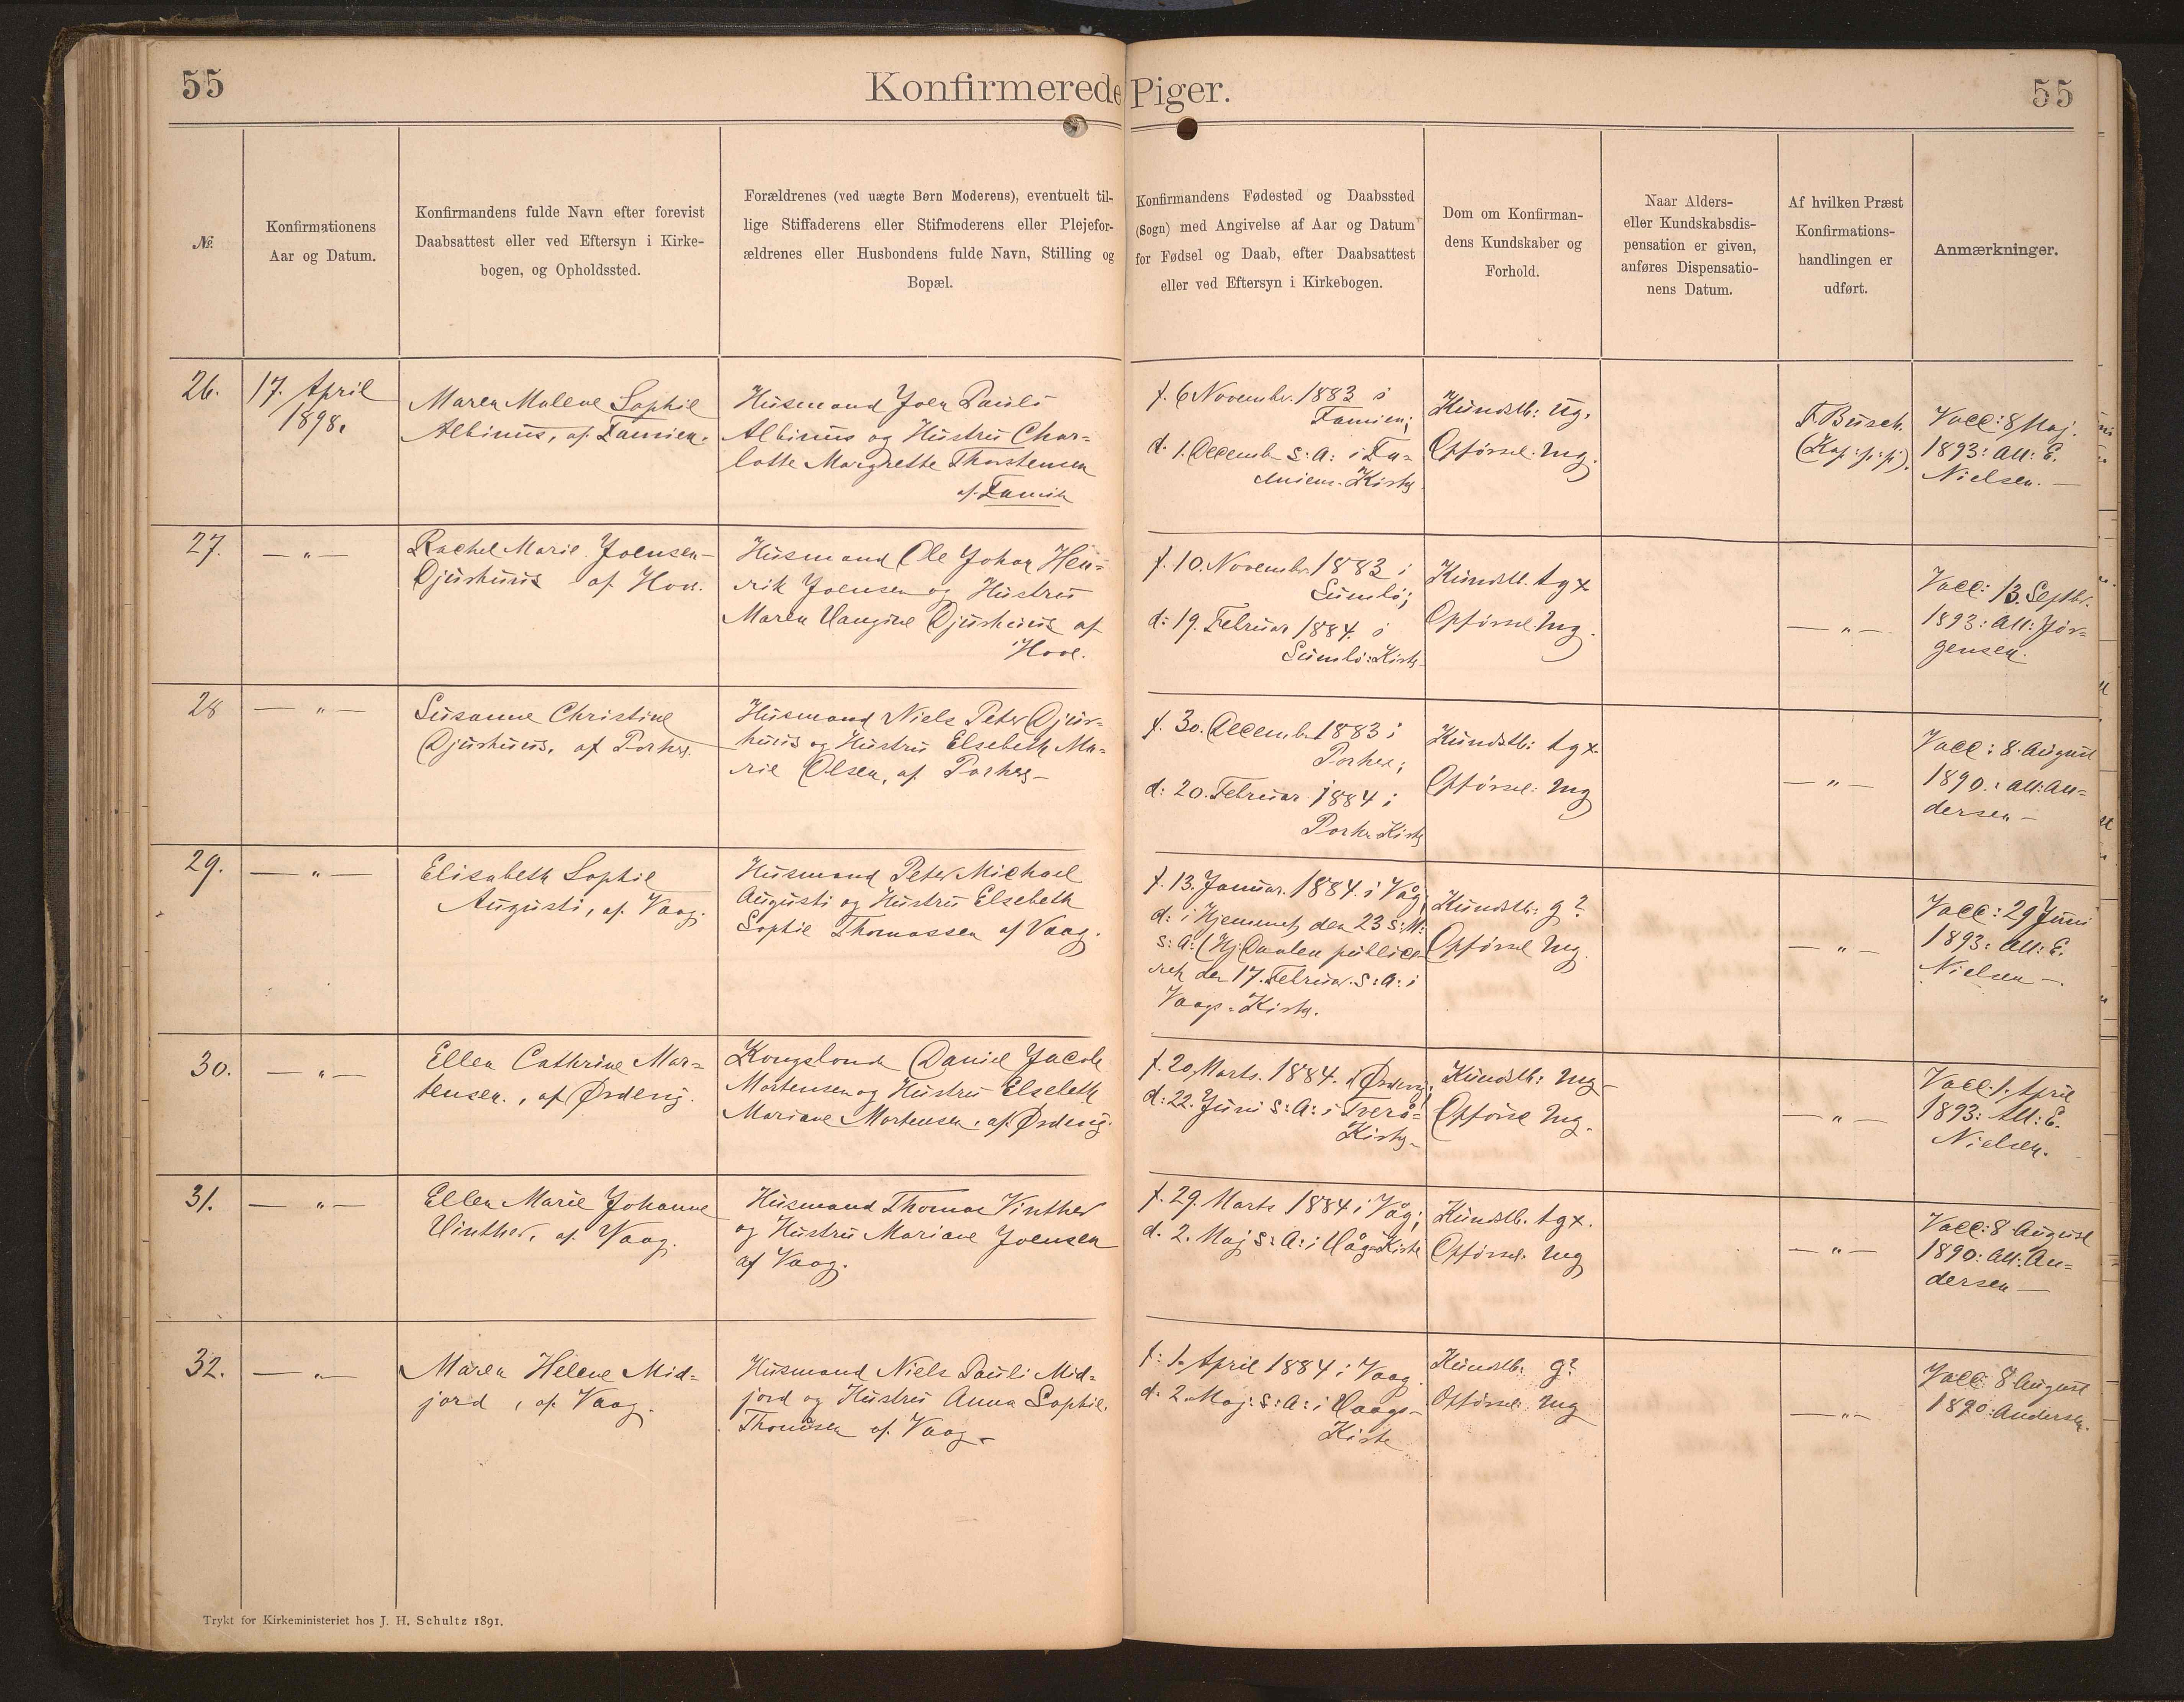 55
Konfirmerede Piger.
55
№.
Konfirmationens
Aar og Datum.
Konfirmandens fulde Navn efter forevist
Daabsattest eller ved Eftersyn i Kirke-
bogen, og Opholdssted.
Forældrenes (ved uægte Børn Moderens), eventuelt til-
lige Stiffaderens eller Stifmoderens eller Plejefor-
ældrenes eller Husbondens fulde Navn, Stilling og
Bopæl.
Konfirmandens Fødested og Daabssted
(Sogn) med Angivelse af Aar og Datum
for Fødsel og Daab, efter Daabsattest
eller ved Eftersyn i Kirkebogen.
Dom om Konfirman-
dens Kundskaber og
Forhold.
Naar Alders-
eller Kundskabsdis-
pensation er given,
anføres Dispensatio-
nens Datum.
Af hvilken Præst
Konfirmations-
handlingen er
udført.
Anmærkninger.
26.
17. April
1898.
Maren Malene Sophie
Albinus, af Famien.
Husmand Joen Pauli
Albinus og Hustru Char=
lotte Margrethe Thorstensen
af Famien
f. 6 November 1883 i
Famien;
d. 1. Decemb. s: a: i Fa=
miens Kirke
Kundsk: ug.
Opførsel. mg.
F Busch.
(Kap: p: p:).
Vacc: 8 Maj.
1893: att: E.
Nielsen. —
27.
— " —
Rachel Marie Joensen
Djurhuus af Hov.
Husmand Ole Johan Hen=
rik Joensen og Hustru
Maren Hangine Djurhuus af
Hove.
f. 10. Novemb. 1883 i
Sumbø;
d: 19. Februar 1884 i
Sumbø: Kirke
Kundsk. tgx
Opførsel mg.
— " —
Vacc: 13. Septbr.
1893: att: Jør=
gensen.
28
— " —
Susanne Christine
Djurhuus, af Porkere.
Husmand Niels Peter Djur=
huus og Hustru Elsebeth Ma=
rie Olsen, af Porkere —
f. 30. Decemb. 1883 i
Porkere;
d: 20. Februar 1884 i
Porke Kirke
Kundsk: tgx
Opførsel: mg
— " —
Vacc: 8. August
1890.: att: An=
dersen —
29.
— " —
Elisabeth Sophie
Augusti, af Vaag.
Husmand Peter Michael
Augusti og Hustru Elsebeth
Sophie Thomassen af Vaag.
f. 13. Januar. 1884. i Våg;
d: i Hjemmet den 23 s: M:
s: a: (Hj. Daaben publice=
ret den 17. Februar. s: a: i
Vaags = Kirke.
Kundsk: g?
Opførsel mg.
— " —
Vacc: 29 Juni
1893: att: E.
Nielsen —
30.
— " —
Ellen Cathrine Mor=
tensen., af Ørdevig.
Kongsbonde Daniel Jacob
Mortensen og Hustru Elsebeth
Mariane Mortensen, af Ørdevig.
f. 20 Marts. 1884. i Ørdevig;
d: 22. Juni s: a: i Tverå=
Kirke —
Kundsk: mg —
Opførse mg.
— " —
Vacc. 1. April
1893: att: E.
Nielsen.
31.
— " —
Ellen Marie Johanne
Vinther, af Vaag.
Husmand Thomas Vinther
og Hustru Mariane Joensen
af Vaag.
f. 29. Marts 1884 i Våg;
d. 2. Maj s: a: i Vågs Kirke
Kundsk. tgx.
Opførsel. mg
— " —
Vacc: 8 August
1890: att: An=
dersen —
32.
— " —
Maren Helene Mid=
jord, af Vaag.
Husmand Niels Pauli Mid=
jord og Hustru Anna Sophie
Thomsen af Vaag —
f: 1. April 1884 i Vaag.
d: 2. Maj: s: a: i Vaags —
Kirke
Kundsk: g?
Opførsel. mg
— " —
Vacc 8 August
1890: Andersen.
Trykt for Kirkeministeriet hos J. H. Schultz 1891.